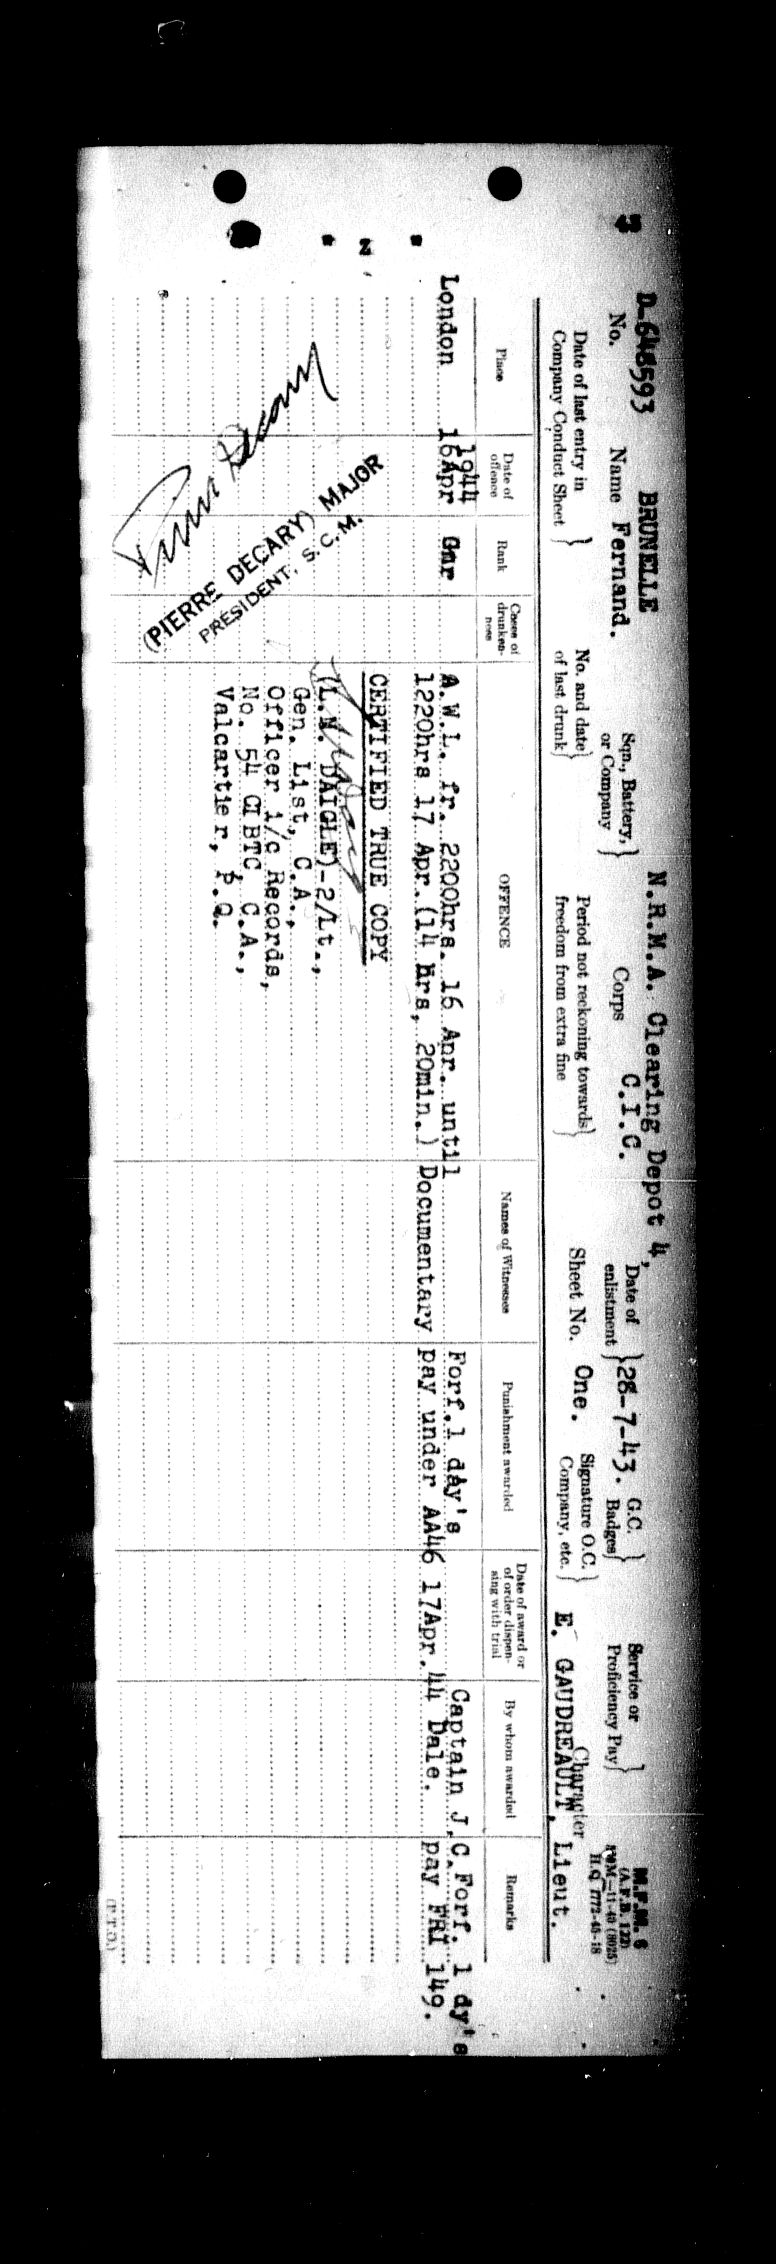 45
" Z "
M.F.M. 6
(A.F.B. 122)
H.Q. 1772-45-18
D-648593 BRUNELLE N.R.M.A. Clearing Depot 4,
No. Name Fernand. Sqn., Battery, or Company } Corps C.I.C. Date of enlistment } 28-7-43. G.C. Badges } Service or Proficiency Pay }
Date of last entry in Company Conduct Sheet } No. and date of last drunk } Period not reckoning towards freedom from extra fine } Sheet No. One. Signature O.C. Company, etc. } E. GAUDREAULT, Lieut. Character
Place Date of offence Rank Cases of drunkenness OFFENCE Names of Witnesses Punishment awarded Date of award or of order dispensing with trial By whom awarded Remarks
1944
London 16Apr Gnr A.W.L. fr. 2200hrs. 16 Apr. until Forf.1 day's Captain J.C. Forf. 1 dy's
1220hrs 17 Apr.(14 Hrs, 20min.) Documentary pay under AA46 17Apr.44 Dale. pay FRI 149.
CERTIFIED TRUE COPY
(L.N. DAIGLE)-2/Lt.,
Gen. List, C.A.,
Officer i/c Records,
No. 54 CIBTC C.A.,
Valcartier, P.Q.
Pierre Decary
(PIERRE DECARY) MAJOR
PRESIDENT, S.C.M.
(P.T.O.)